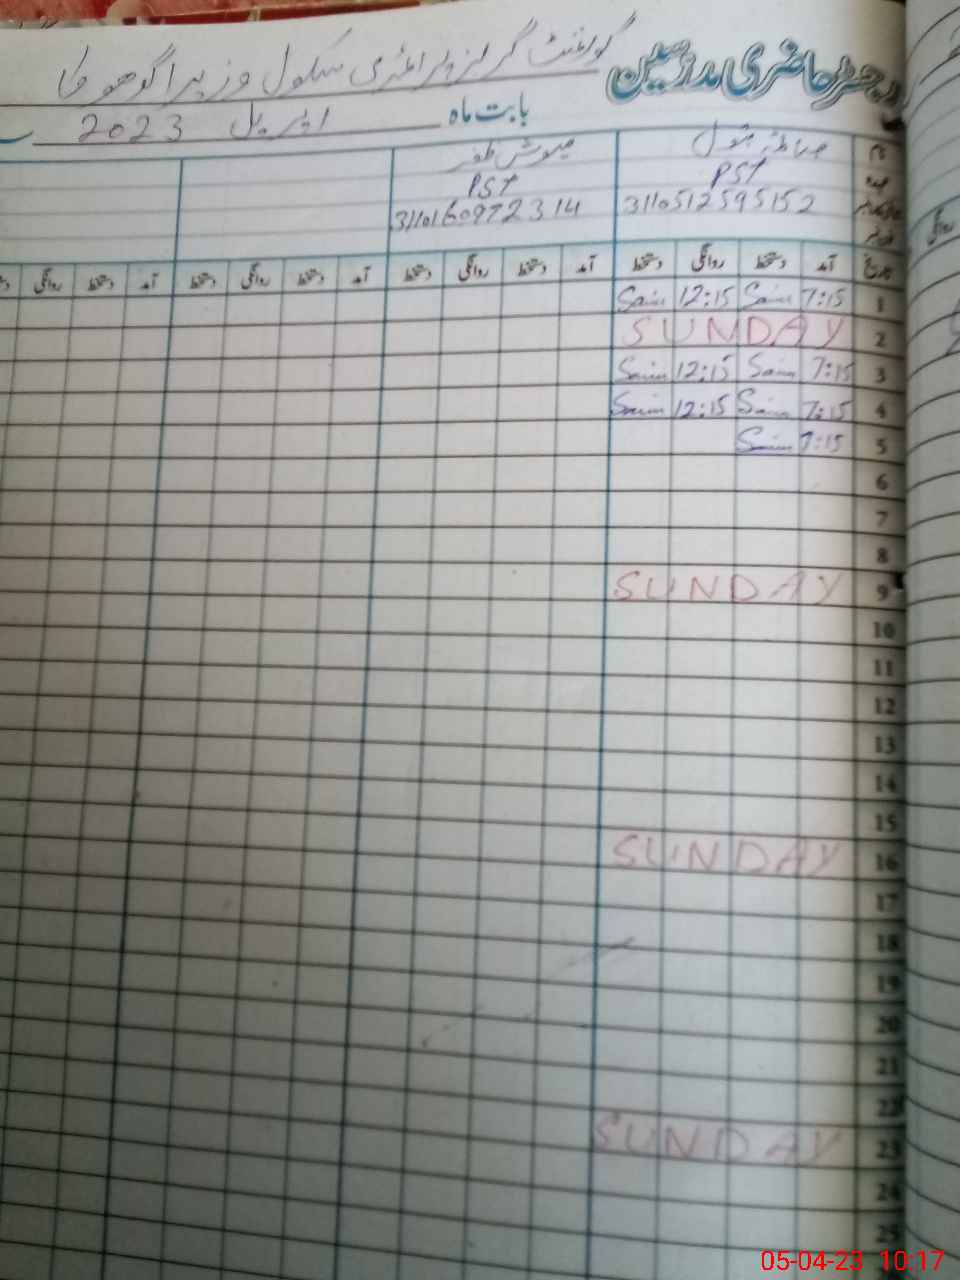 رجسٹر حاضری مدرسین گورنمنٹ گرلز پرائمری سکول وزیرا گھوکا
بابت ماہ اپریل 2023
نام صائمہ بتول مہوش ظفر
عہدہ PST PST
3110512595152 3110160972314
تاریخ آمد دستخط روانگی دستخط آمد دستخط روانگی دستخط آمد دستخط روانگی دستخط آمد دستخط روانگی
1 7:15 Saim 12:15 Saim
2 SUNDAY
3 7:15 Saim 12:15 Saim
4 7:15 Saim 12:15 Saim
5 7:15 Saim
6
7
8
9 SUNDAY
10
11
12
13
14
15
16 SUNDAY
17
18
19
20
21
22
23 SUNDAY
24
25
05-04-23 10:17